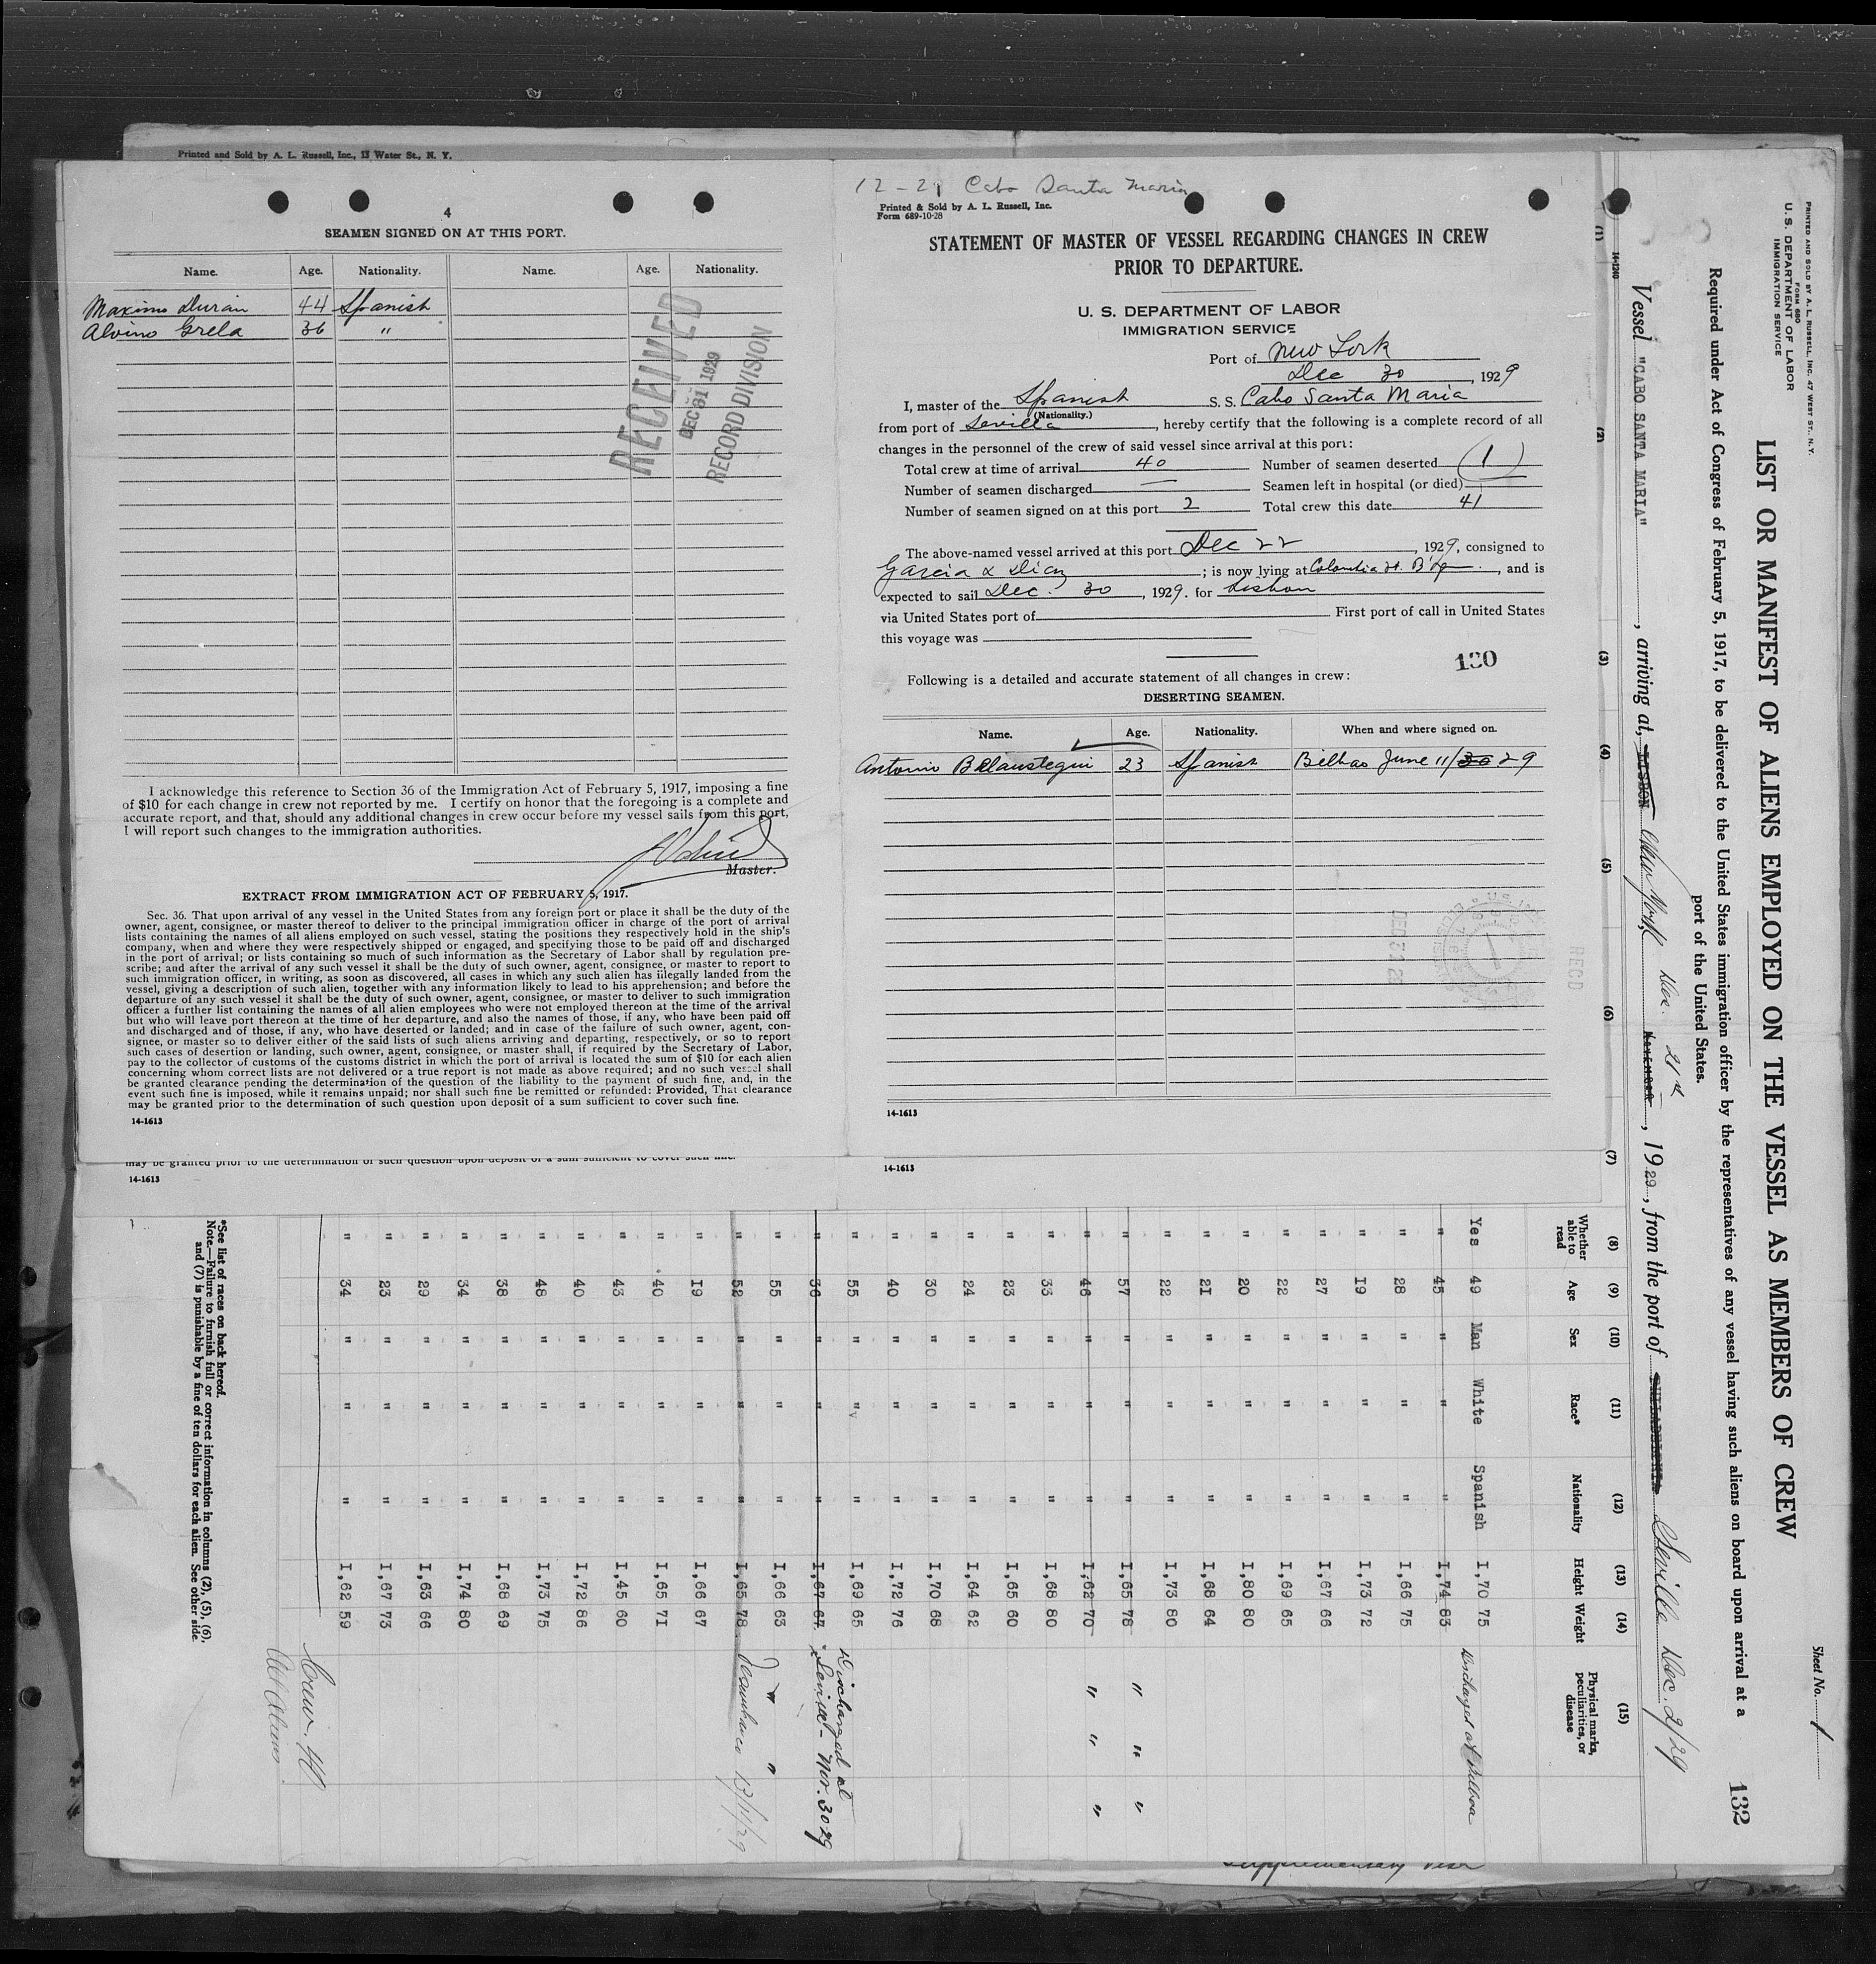 Printed and Sold by A. L. Russell, Inc., 13 Water St., N. Y.
4
SEAMEN SIGNED ON AT THIS PORT.
Name. Age. Nationality. Name. Age. Nationality.
Maximo Duran 44 Spanish
Alvino Grela 36 "
RECEIVED
DEC 31 1929
RECORD DIVISION
I acknowledge this reference to Section 36 of the Immigration Act of February 5, 1917, imposing a fine
of $10 for each change in crew not reported by me. I certify on honor that the foregoing is a complete and
accurate report, and that, should any additional changes in crew occur before my vessel sails from this port,
I will report such changes to the immigration authorities.
Master.
EXTRACT FROM IMMIGRATION ACT OF FEBRUARY 5, 1917.
Sec. 36. That upon arrival of any vessel in the United States from any foreign port or place it shall be the duty of the
owner, agent, consignee, or master thereof to deliver to the principal immigration officer in charge of the port of arrival
lists containing the names of all aliens employed on such vessel, stating the positions they respectively hold in the ship's
company, when and where they were respectively shipped or engaged, and specifying those to be paid off and discharged
in the port of arrival; or lists containing so much of such information as the Secretary of Labor shall by regulation pre-
scribe; and after the arrival of any such vessel it shall be the duty of such owner, agent, consignee, or master to report to
such immigration officer, in writing, as soon as discovered, all cases in which any such alien has illegally landed from the
vessel, giving a description of such alien, together with any information likely to lead to his apprehension; and before the
departure of any such vessel it shall be the duty of such owner, agent, consignee, or master to deliver to such immigration
officer a further list containing the names of all alien employees who were not employed thereon at the time of the arrival
but who will leave port thereon at the time of her departure, and also the names of those, if any, who have been paid off
and discharged and of those, if any, who have deserted or landed; and in case of the failure of such owner, agent, con-
signee, or master so to deliver either of the said lists of such aliens arriving and departing, respectively, or so to report
such cases of desertion or landing, such owner, agent, consignee, or master shall, if required by the Secretary of Labor,
pay to the collector of customs of the customs district in which the port of arrival is located the sum of $10 for each alien
concerning whom correct lists are not delivered or a true report is not made as above required; and no such vessel shall
be granted clearance pending the determination of the question of the liability to the payment of such fine, and, in the
event such fine is imposed, while it remains unpaid; nor shall such fine be remitted or refunded: Provided, That clearance
may be granted prior to the determination of such question upon deposit of a sum sufficient to cover such fine.
14-1613
may be granted prior to the determination of such question upon deposit of a sum sufficient to cover such fine.
14-1613
12-21 Cabo Santa Maria
Printed & Sold by A. L. Russell, Inc.
Form 689-10-28
STATEMENT OF MASTER OF VESSEL REGARDING CHANGES IN CREW
PRIOR TO DEPARTURE.
U. S. DEPARTMENT OF LABOR
IMMIGRATION SERVICE
Port of New York
Dec 30, 1929
I, master of the Spanish S. S. Cabo Santa Maria
(Nationality.)
from port of Sevilla, hereby certify that the following is a complete record of all
changes in the personnel of the crew of said vessel since arrival at this port:
Total crew at time of arrival 40 Number of seamen deserted (1)
Number of seamen discharged — Seamen left in hospital (or died)
Number of seamen signed on at this port 2 Total crew this date 41
The above-named vessel arrived at this port Dec 22, 1929, consigned to
Garcia & Diaz; is now lying at Columbia St. B'lyn, and is
expected to sail Dec. 30, 1929. for Lisbon
via United States port of First port of call in United States
this voyage was
130
Following is a detailed and accurate statement of all changes in crew:
DESERTING SEAMEN.
Name. Age. Nationality. When and where signed on.
Antonio Belaustegui 23 Spanish Bilbao June 11/30 29
DEC 31 29
REC'D
14-1613
14-1613
PRINTED AND SOLD BY A. L. RUSSELL, INC. 47 WEST ST., N. Y.
FORM 680
U. S. DEPARTMENT OF LABOR
IMMIGRATION SERVICE
Sheet No. 1
LIST OR MANIFEST OF ALIENS EMPLOYED ON THE VESSEL AS MEMBERS OF CREW
132
Required under Act of Congress of February 5, 1917, to be delivered to the United States immigration officer by the representatives of any vessel having such aliens on board upon arrival at a
port of the United States.
Vessel "CABO SANTA MARIA", arriving at, LISBON New York Dec. 21st NOVEMBER, 1929, from the port of PHILADELPHIA Seville Dec. 2/29
14-1240
(1) (2) (3) (4) (5) (6) (7) (8) (9) (10) (11) (12) (13) (14) (15)
Whether able to read Age Sex Race* Nationality Height Weight Physical marks, peculiarities, or disease
Yes 49 Man White Spanish I,70 75 Discharged at Bilboa
" 45 " " " I,74 83
" 28 " " " I,66 75
" I9 " " " I,73 72
" 27 " " " I,67 66
" 22 " " " I,69 65
" 20 " " " I,80 80
" 2I " " " I,68 64
" 22 " " " I,73 80
" 57 " " " I,65 78 " " "
" 46 " " " I,62 70 " " "
" 33 " " " I,68 80
" 23 " " " I,65 60
" 24 " " " I,64 62
" 30 " " " I,70 68
" 40 " " " I,72 76
" 55 " " " I,69 65 Discharged at
" 36 " " " I,67 67 Seville - Nov. 30 29
" 55 " " " I,66 63 " "
" 52 " " " I,65 78 13/11/29
" I9 " " " I,66 67
" 40 " " " I,65 7I
" 43 " " " I,45 60
" 40 " " " I,72 86
" 48 " " " I,73 75
" 38 " " " I,68 69
" 34 " " " I,74 80
" 29 " " " I,63 66
" 23 " " " I,67 73
" 34 " " " I,62 59
Crew. 40
All Aliens
*See list of races on back hereof.
Note.—Failure to furnish full or correct information in columns (2), (5), (6),
and (7) is punishable by a fine of ten dollars for each alien. See other side.